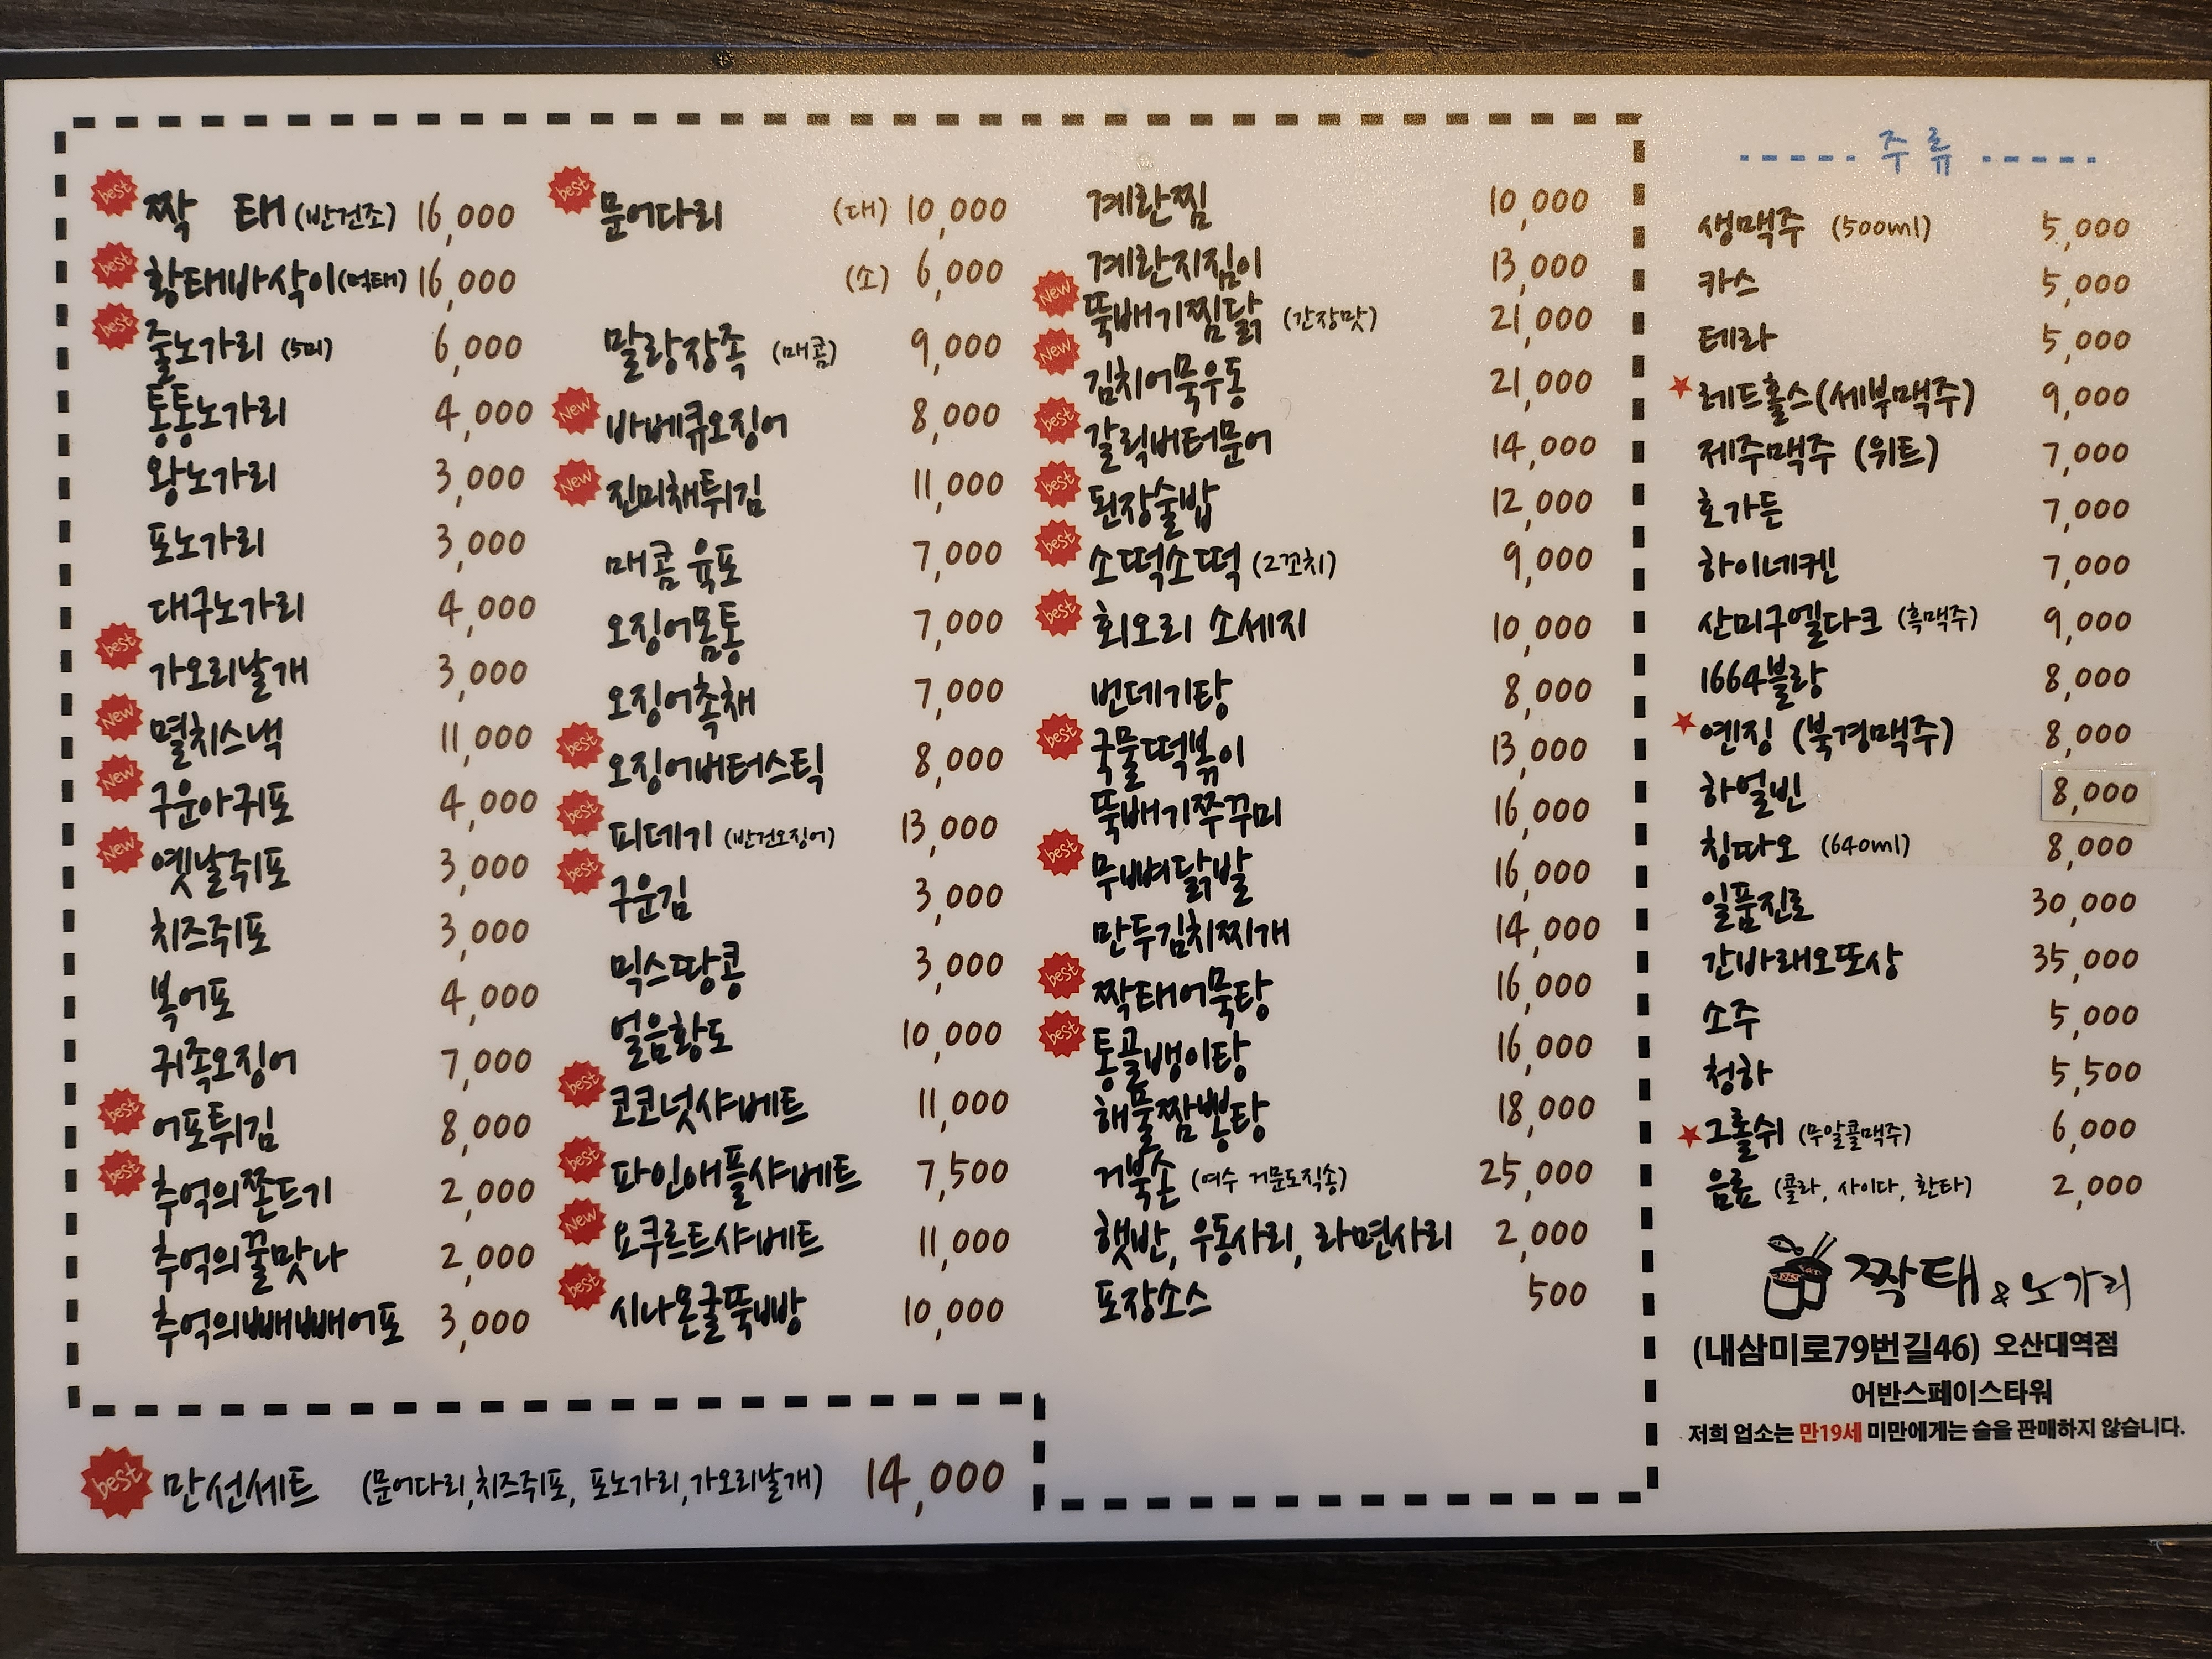 best 짝 태 (반건조) 16,000
best 황태바삭이(먹태) 16,000
best 줄노가리 (5미) 6,000
통통노가리 4,000
왕노가리 3,000
포노가리 3,000
대구노가리 4,000
best 가오리날개 3,000
New 멸치스낵 11,000
New 구운아귀포 4,000
New 옛날쥐포 3,000
치즈쥐포 3,000
복어포 4,000
귀족오징어 7,000
best 어포튀김 8,000
best 추억의쫀드기 2,000
추억의꿀맛나 2,000
추억의빼빼어포 3,000
best 문어다리 (대) 10,000
(소) 6,000
말랑장족 (매콤) 9,000
New 바베큐오징어 8,000
New 진미채튀김 11,000
매콤 육포 7,000
오징어몸통 7,000
오징어촉채 7,000
best 오징어버터스틱 8,000
best 피데기 (반건오징어) 13,000
best 구운김 3,000
믹스땅콩 3,000
얼음황도 10,000
best 코코넛샤베트 11,000
best 파인애플샤베트 7,500
New 요쿠르트샤베트 11,000
best 시나몬굴뚝빵 10,000
계란찜 10,000
계란지짐이 13,000
New 뚝배기찜닭 (간장맛) 21,000
New 김치어묵우동 21,000
best 갈릭버터문어 14,000
best 된장술밥 12,000
best 소떡소떡 (2꼬치) 9,000
best 회오리 소세지 10,000
번데기탕 8,000
best 국물떡볶이 13,000
뚝배기쭈꾸미 16,000
best 무뼈닭발 16,000
만두김치찌개 14,000
best 짝태어묵탕 16,000
best 통골뱅이탕 16,000
해물짬뽕탕 18,000
거북손 (여수 거문도직송) 25,000
햇반, 우동사리, 라면사리 2,000
포장소스 500
best 만선세트 (문어다리,치즈쥐포, 포노가리,가오리날개) 14,000
주류
생맥주 (500ml) 5,000
카스 5,000
테라 5,000
레드홀스(세부맥주) 9,000
제주맥주 (위트) 7,000
호가든 7,000
하이네켄 7,000
산미구엘다크 (흑맥주) 9,000
1664블랑 8,000
옌징 (북경맥주) 8,000
하얼빈 8,000
칭따오 (640ml) 8,000
일품진로 30,000
간바래오또상 35,000
소주 5,000
청하 5,500
그롤쉬 (무알콜맥주) 6,000
음료 (콜라, 사이다, 환타) 2,000
짝태 & 노가리
(내삼미로79번길46) 오산대역점
어반스페이스타워
저희 업소는 만19세 미만에게는 술을 판매하지 않습니다.